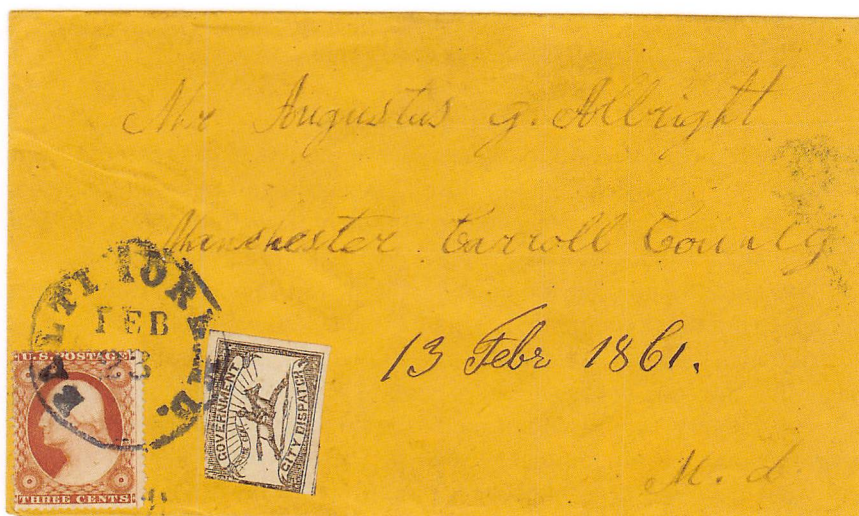 Mr Augustus G. Allbright
Manchester Carroll County
BALTIMORE Md.
FEB
13 Febr 1861.
U.S. POSTAGE
THREE CENTS
GOVERNMENT
CITY DISPATCH
M. d